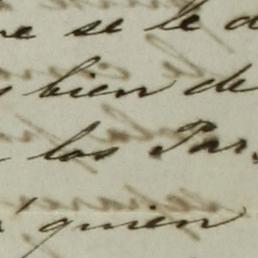 se le
bien de
los Par
quien